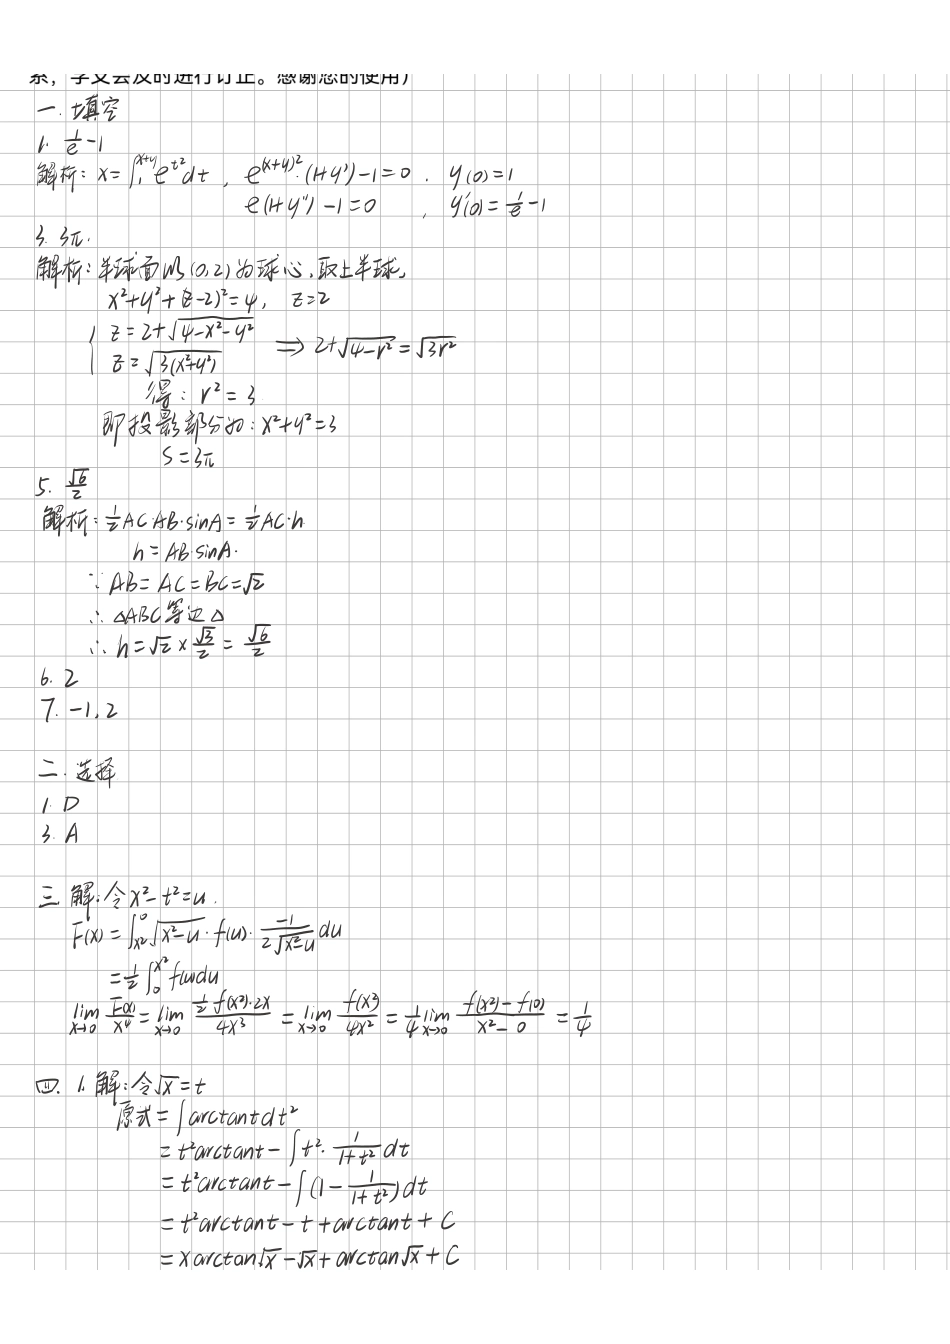 系，学支会及时进行订正。感谢您的使用）
一. 填空
1. 1/e -1
解析: x=∫₁^(x+y) e^(t²)dt , e^((x+y)²)·(1+y')-1=0 . y(0)=1
e(1+y')-1=0 , y'(0)=1/e -1
3. 3π.
解析: 半球面以(0,2)为球心,取上半球,
x²+y²+(z-2)²=4, z=2
{ z=2+√(4-x²-y²)
z=√(3(x²+y²)) ⟹ 2+√(4-r²)=√(3r²)
得: r²=3
即投影部分为: x²+y²=3
S=3π
5. √6/2
解析: 1/2 AC·AB·sinA=1/2 AC·h
h=AB·sinA.
∵ AB=AC=BC=√2
∴ △ABC等边△
∴ h=√2×√3/2=√6/2
6. 2
7. -1, 2
二. 选择
1. D
3. A
三 解: 令x²-t²=u.
F(x)=∫_(x²)^0 √(x²-u)·f(u)·(-1)/(2√(x²-u)) du
=1/2 ∫₀^(x²) f(u)du
lim_(x→0) F(x)/x⁴=lim_(x→0) (1/2 f(x²)·2x)/(4x³)=lim_(x→0) f(x²)/(4x²)=1/4 lim_(x→0) (f(x²)-f(0))/(x²-0)=1/4
四. 1. 解: 令√x=t
原式=∫arctant dt²
=t²arctant-∫t²·1/(1+t²) dt
=t²arctant-∫(1-1/(1+t²))dt
=t²arctant-t+arctant+C
=xarctan√x-√x+arctan√x+C